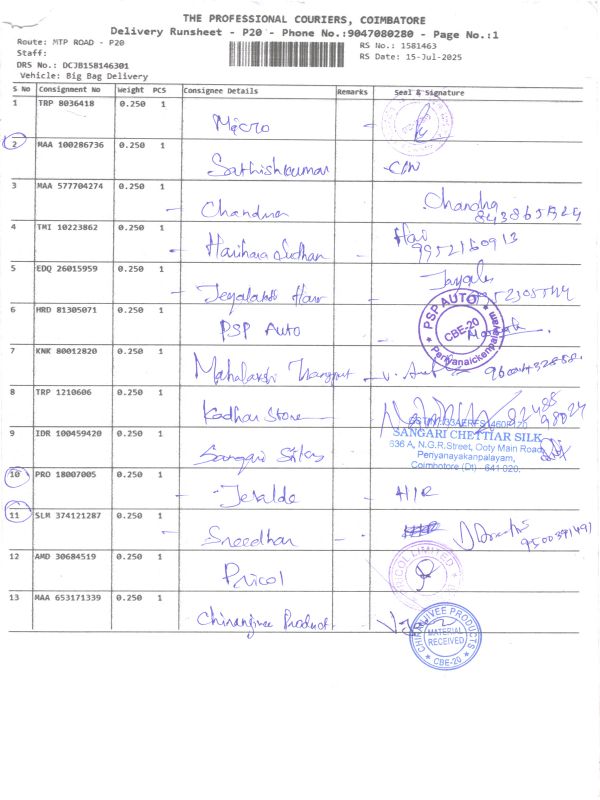 THE PROFESSIONAL COURIERS, COIMBATORE
Delivery Runsheet - P20 - Phone No.:9047080280 - Page No.:1
Route: MTP ROAD - P20 RS No.: 1581463
Staff: RS Date: 15-Jul-2025
DRS No.: DCJB158146301
Vehicle: Big Bag Delivery
S No Consignment No Weight PCS Consignee Details Remarks Seal & Signature
1 TRP 8036418 0.250 1 Micro
2 MAA 100286736 0.250 1 Sathishkumar
3 MAA 577704274 0.250 1 Chandra Chandra
4 TMI 10223862 0.250 1 Harihara Sudhan Hari
9952160913
5 EDQ 26015959 0.250 1
6 HRD 81305071 0.250 1 PSP Auto PSP AUTO CBE-20 Periyanaickenpalayam
7 KNK 80012820 0.250 1 Mahalakshi
8 TRP 1210606 0.250 1 Kadhar Store
9 IDR 100459420 0.250 1 Sangari
SANGARI CHETTIAR SILK
636 A, N.G.R.Street, Ooty Main Road,
Periyanayakanpalayam,
Coimbotore (Dt) 641 020.
10 PRO 18007005 0.250 1
11 SLM 374121287 0.250 1 Sreedhar 9500391491
12 AMD 30684519 0.250 1 Pricol PRICOL LIMITED
13 MAA 653171339 0.250 1 Chiranjivee Product CHIRANJIVEE PRODUCTS
MATERIAL
RECEIVED
CBE-20